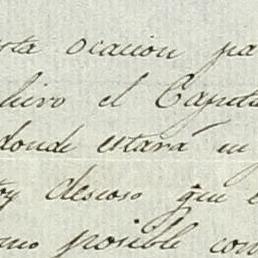 sta ocacion pa
hivo el Capita
donde estará en
toy deseoso que e
mo posible con